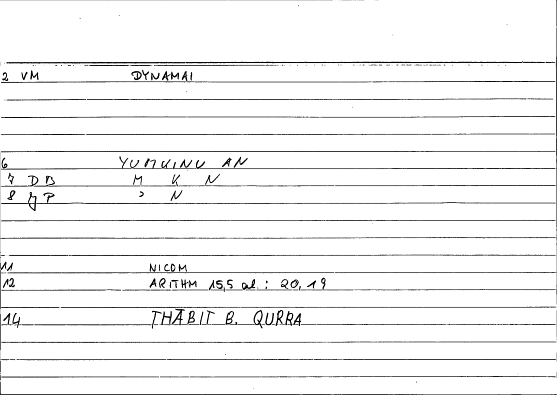 2 VM DYNAMAI
6 YUMKINU AN
7 DB M K N
8 JP ɔ N
11 NICOM
12 ARITHM 15,5 al.: 20,19
14 THĀBIT B. QURRA